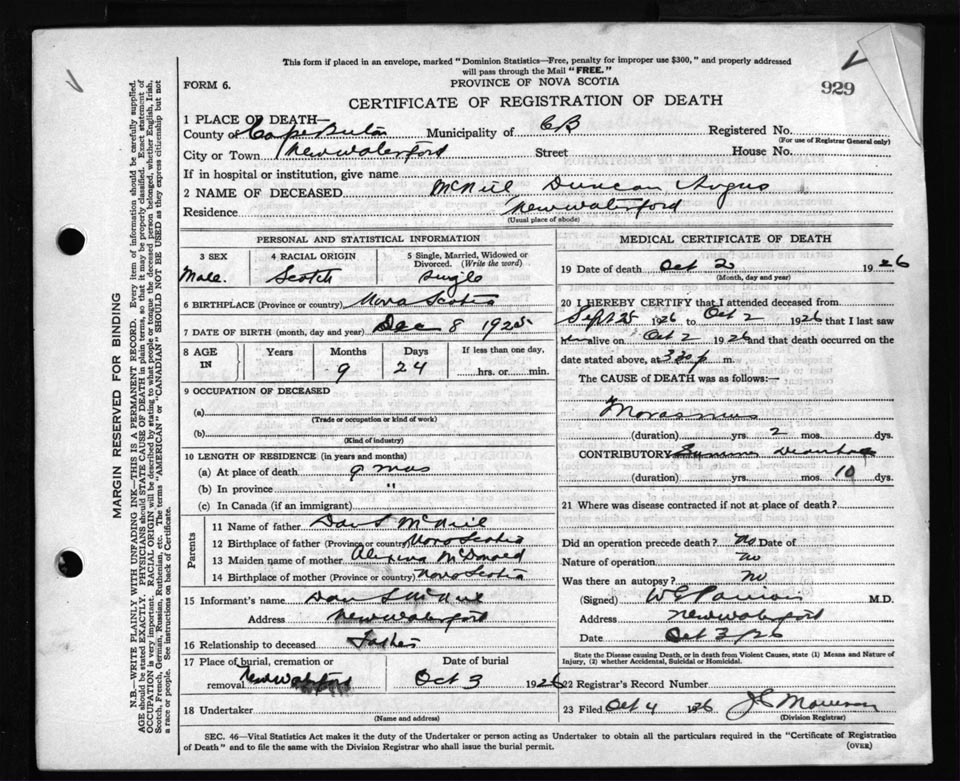 This form if placed in an envelope, marked "Dominion Statistics—Free, penalty for improper use $300," and properly addressed
will pass through the Mail "FREE."
FORM 6.
PROVINCE OF NOVA SCOTIA
929
CERTIFICATE OF REGISTRATION OF DEATH
1 PLACE OF DEATH—
County of Cape Breton Municipality of CB Registered No.
(For use of Registrar General only)
City or Town New Waterford Street House No.
If in hospital or institution, give name
2 NAME OF DECEASED McNeil Duncan Angus
Residence New Waterford
(Usual place of abode)
PERSONAL AND STATISTICAL INFORMATION
3 SEX 4 RACIAL ORIGIN 5 Single, Married, Widowed or Divorced. (Write the word)
Male. Scotch Single
6 BIRTHPLACE (Province or country) Nova Scotia
7 DATE OF BIRTH (month, day and year) Dec 8 1925
8 AGE IN Years Months Days If less than one day,
9 24 hrs. or min.
9 OCCUPATION OF DECEASED
(a)
(Trade or occupation or kind of work)
(b)
(Kind of industry)
10 LENGTH OF RESIDENCE (in years and months)
(a) At place of death 9 mos
(b) In province "
(c) In Canada (if an immigrant)
Parents
11 Name of father Dan S McNeil
12 Birthplace of father (Province or country) Nova Scotia
13 Maiden name of mother McDonald
14 Birthplace of mother (Province or country) Nova Scotia
15 Informant's name Dan S McNeil
Address New Waterford
16 Relationship to deceased Father
17 Place of burial, cremation or removal Date of burial
New Waterford Oct 3 1926
18 Undertaker
(Name and address)
MEDICAL CERTIFICATE OF DEATH
19 Date of death Oct 2 1926
(Month, day and year)
20 I HEREBY CERTIFY that I attended deceased from
Sept 25 1926 to Oct 2 1926 that I last saw
alive on Oct 2 1926 and that death occurred on the
date stated above, at 330 p m.
The CAUSE of DEATH was as follows:—
Marasmus
(duration) yrs. 2 mos. dys.
CONTRIBUTORY Summer Diarrhoea
(duration) yrs. mos. 10 dys.
21 Where was disease contracted if not at place of death?
Did an operation precede death? No Date of
Nature of operation No
Was there an autopsy? No
(Signed) M.D.
Address New Waterford
Date Oct 3/26
State the Disease causing Death, or in death from Violent Causes, state (1) Means and Nature of
Injury, (2) whether Accidental, Suicidal or Homicidal.
22 Registrar's Record Number
23 Filed Oct 4 1926
(Division Registrar)
SEC. 46—Vital Statistics Act makes it the duty of the Undertaker or person acting as Undertaker to obtain all the particulars required in the "Certificate of Registration
of Death" and to file the same with the Division Registrar who shall issue the burial permit. (OVER)
MARGIN RESERVED FOR BINDING
N.B.—WRITE PLAINLY WITH UNFADING INK—THIS IS A PERMANENT RECORD. Every item of information should be carefully supplied.
AGE should be stated EXACTLY. PHYSICIANS should STATE CAUSE OF DEATH in plain terms, so that it may be properly classified. Exact statement of
OCCUPATION is very important. RACIAL ORIGIN will be described by stating to what people or tongue the deceased person belonged, whether English, Irish,
Scotch, French, German, Russian, Ruthenian, etc. The terms "AMERICAN" or "CANADIAN" SHOULD NOT BE USED as they express citizenship but not
a race or people. See instructions on back of Certificate.